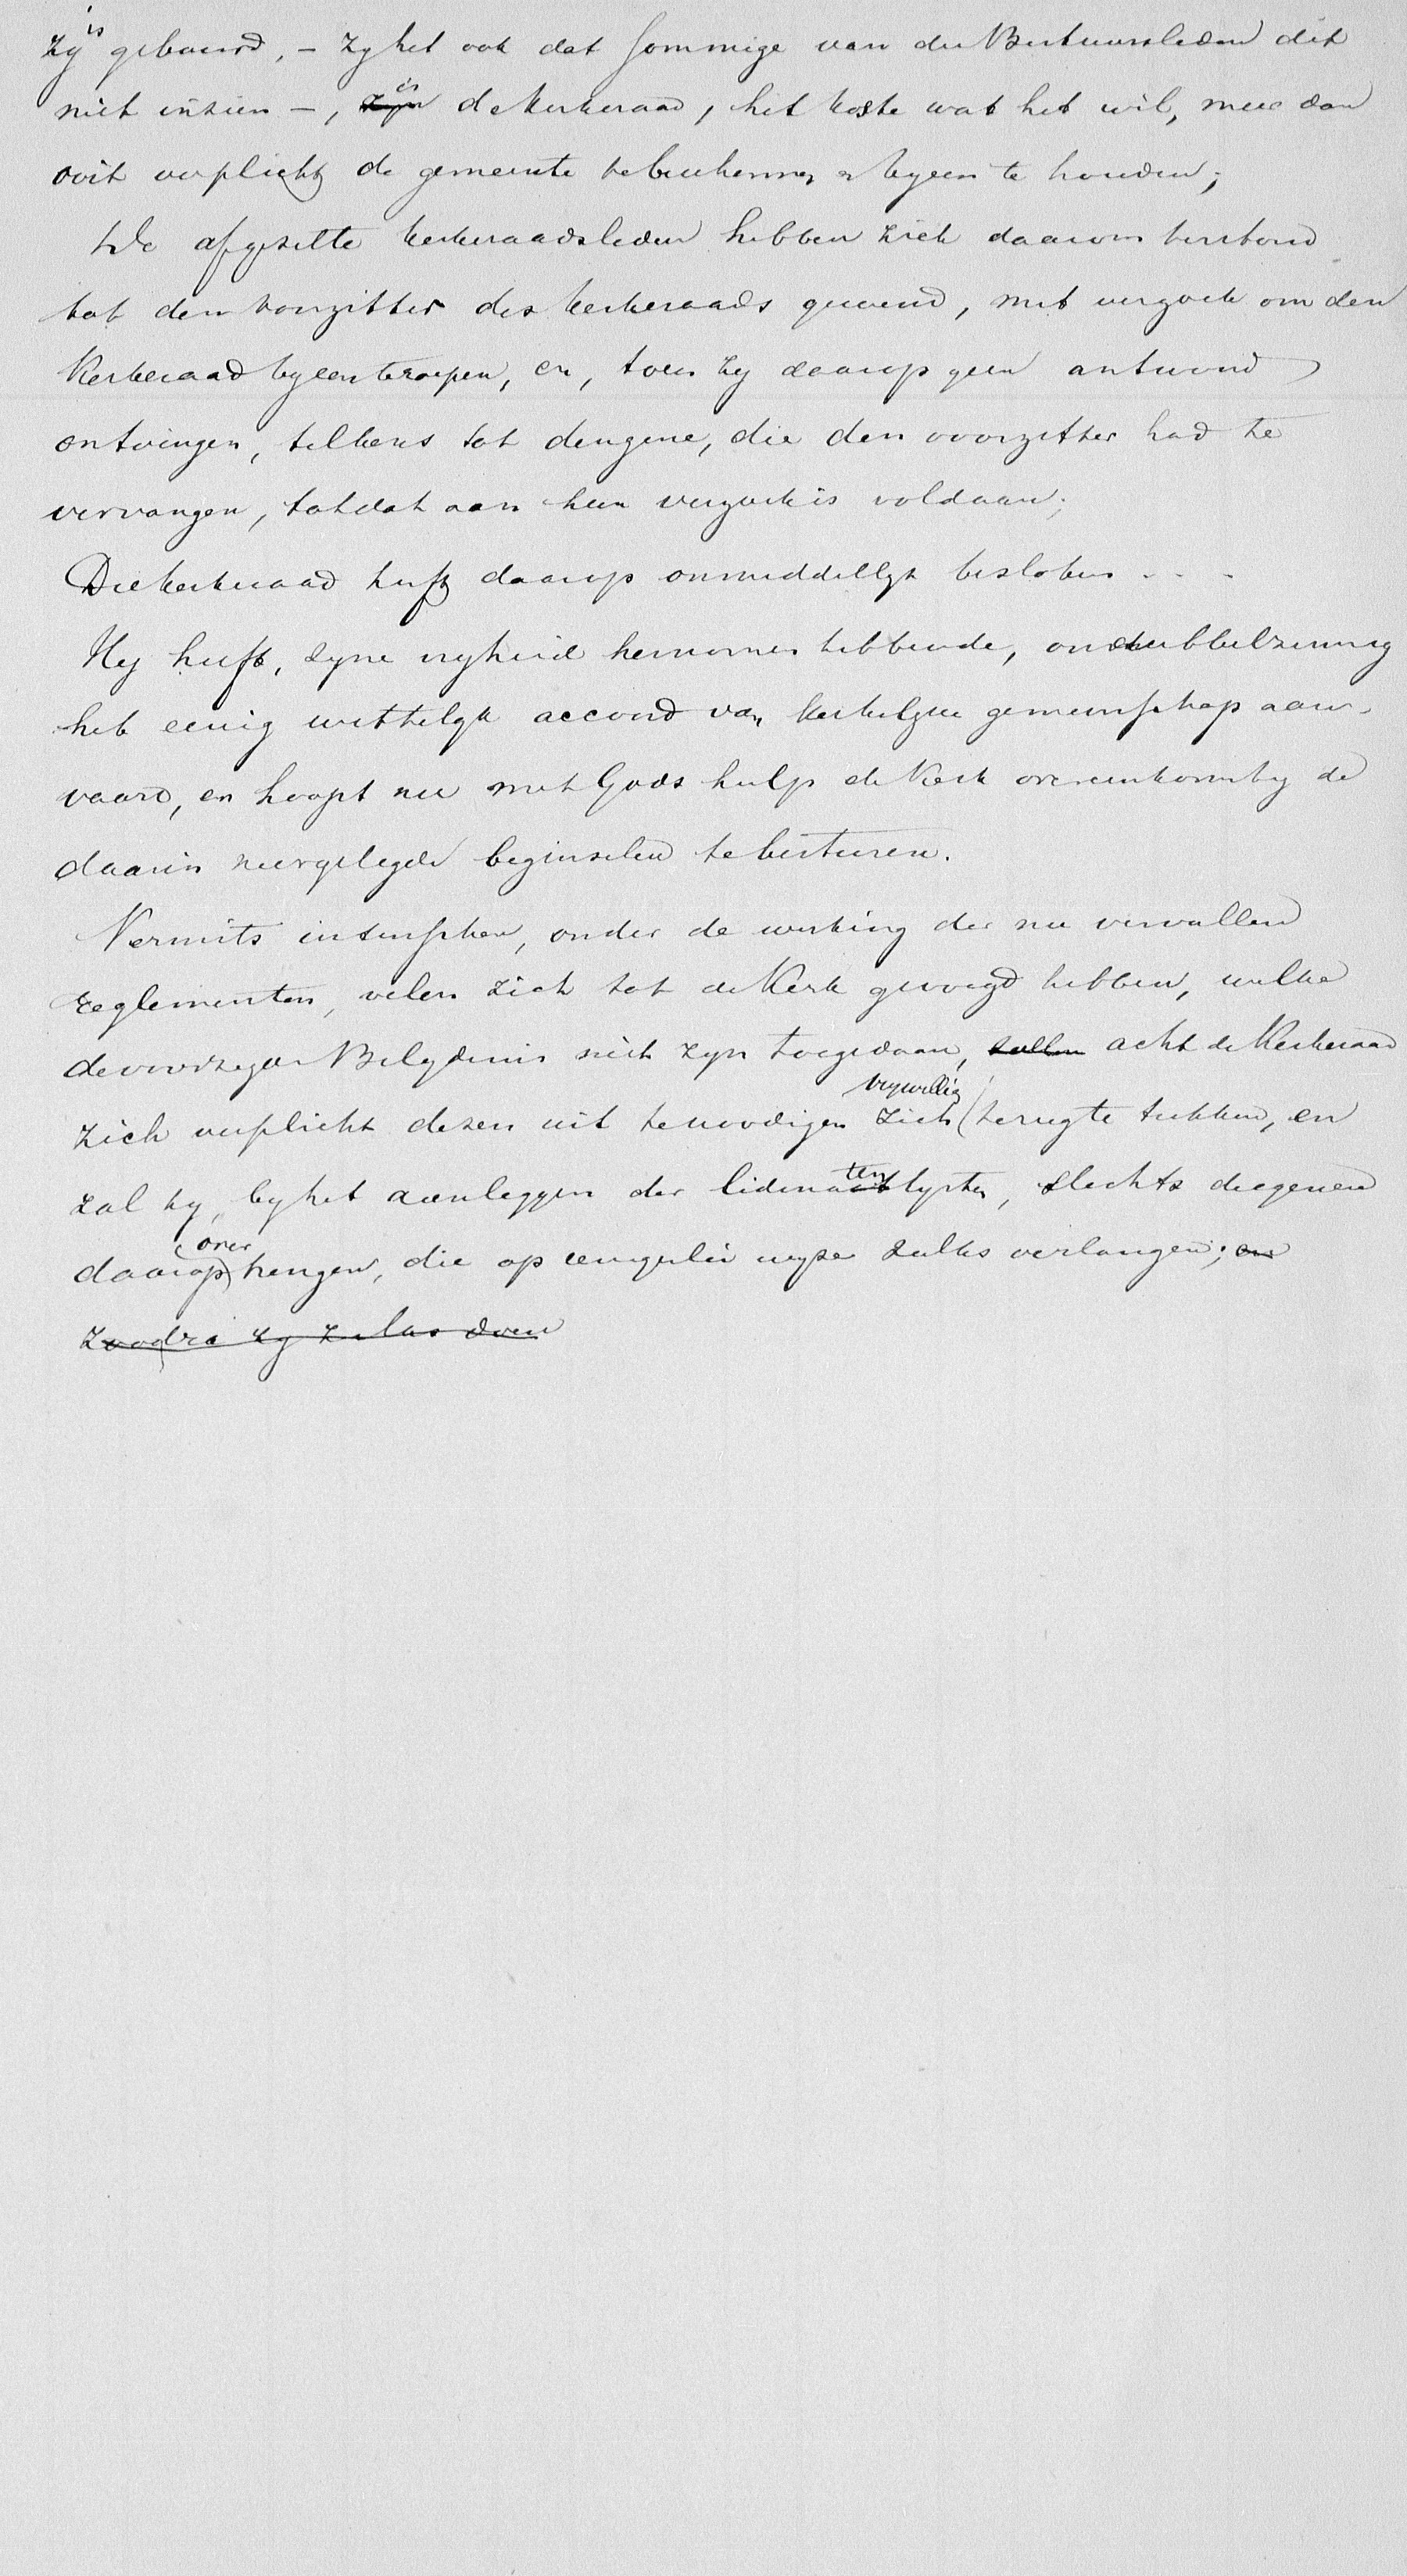 zy is gebeurd, – zy het ook dat sommige van die Bestuursleden dit
niet inzien –, zyn is de Kerkeraad, het koste wat het wil, meer dan
ooit verplicht de gemeente te beschermen en byeen te houden;
De afgezette kerkeraadsleden hebben zich daarom terstond
tot den voorzitter des kerkeraads gewend, met verzoek om den
Kerkeraad byeen te roepen, en, toen zy daarop geen antwoord
ontvingen, telkens tot dengene, die den voorzitter had te
vervangen, totdat aan hun verzoek is voldaan;
Die kerkeraad heeft daarop onmiddellyk besloten . . . .
Hy heeft, zyne vryheid hernomen hebbende, ondubbelzinnig
het eenig wettelyk accoord van kerkelyke gemeenschap aan-
vaard, en hoopt nu met Gods hulp de Kerk overeenkomstig de
daarin neergelegde beginselen te besturen.
Vermits intusschen, onder de werking der nu vervallen
reglementen, velen zich tot de Kerk gevoegd hebben, welke
de voorzegde Belydenis niet zyn toegedaan, zullen acht de Kerkeraad
zich verplicht dezen uit te noodigen zich vrywillig terug te trekken, en
zal hy, by het aanleggen der lidmaatlysten, slechts degenen
daarop over brengen, die op eenigerlei wyze zulks verlangen; en
zoodra zy zulks doen